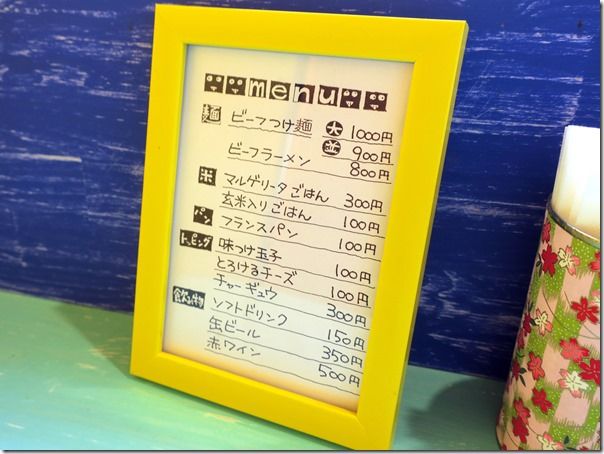 menu
麺 ビーフつけ麺 大 1000円
並 900円
ビーフラーメン 800円
米 マルゲリータごはん 300円
玄米入りごはん 100円
パン フランスパン 100円
トッピング 味つけ玉子 100円
とろけるチーズ 100円
チャーギュウ 300円
飲み物 ソフトドリンク 150円
缶ビール 350円
赤ワイン 500円